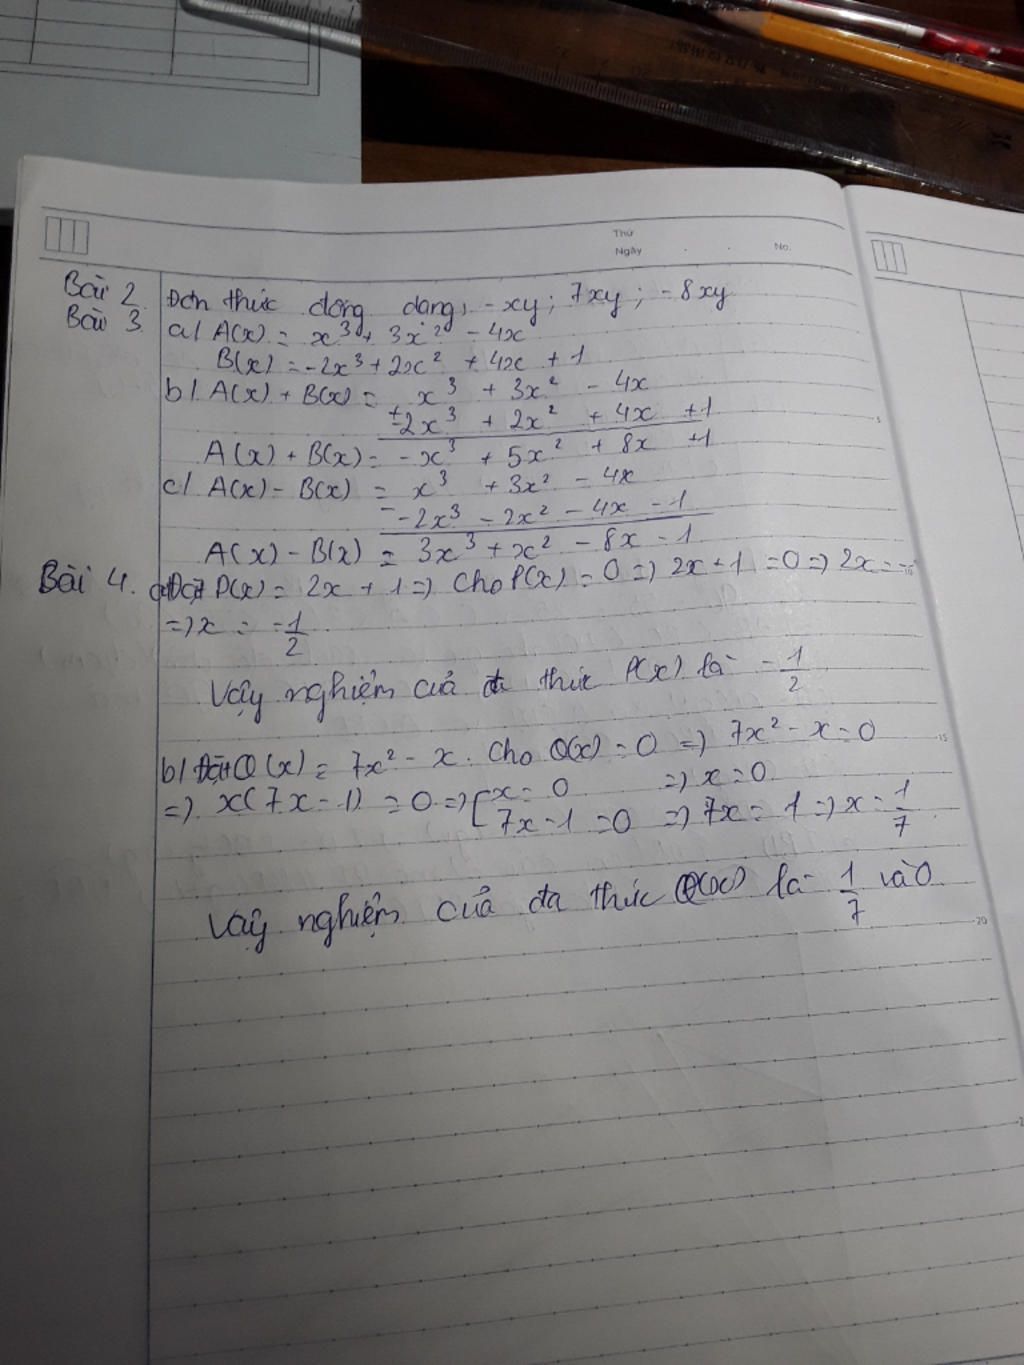 Thứ
Ngày . . No.
Bài 2. Đơn thức đồng dạng, -xy; 7xy; -8xy
Bài 3. a/ A(x) = x³ + 3x² - 4x
B(x) = -2x³ + 2x² + 4x + 1
b/. A(x) + B(x) = x³ + 3x² - 4x
+ -2x³ + 2x² + 4x + 1
5
A(x) + B(x) = -x³ + 5x² + 8x + 1
c/. A(x) - B(x) = x³ + 3x² - 4x
- -2x³ - 2x² - 4x - 1
A(x) - B(x) = 3x³ + x² - 8x - 1
Bài 4. a/ Đặt P(x) = 2x + 1 => Cho P(x) = 0 => 2x + 1 = 0 => 2x = -
=> x = -1/2
Vậy nghiệm của đa thức P(x) là -1/2
b/ Đặt Q(x) = 7x² - x. Cho Q(x) = 0 => 7x² - x = 0
15
=> x(7x - 1) = 0 => [ x = 0 => x = 0
7x - 1 = 0 => 7x = 1 => x = 1/7
Vậy nghiệm của đa thức Q(x) là 1/7 và 0
20